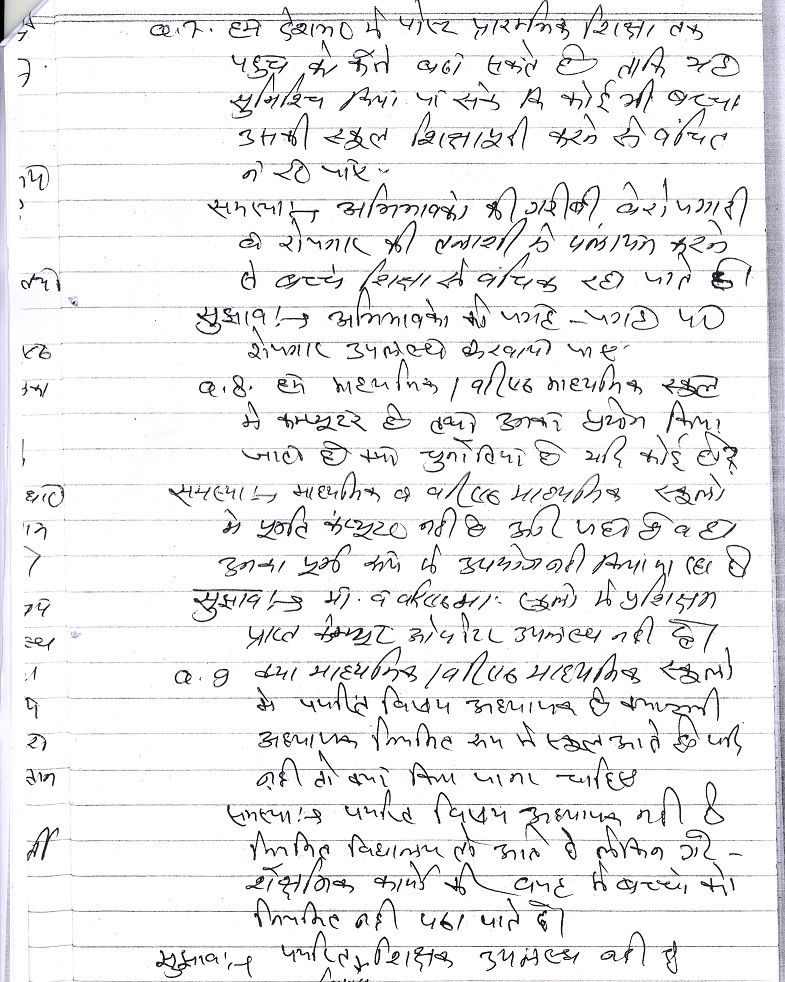 Q.7. हम देशभर में पोस्ट प्रारम्भिक शिक्षा तक
पहुच को कैसे बढा सकते है ताकि यह
सुनिश्चि किया जा सके कि कोई भी बच्चा
उसकी स्कूल शिक्षा पूरी करने से वंचित
न रह पाए -
समस्या:→ अभिभावको की गरीबी बेरोजगारी
व रोजगार की तलाशी में पलायन करने
से बच्चे शिक्षा से वंचिक रहा पाते है।
सुझाव:→ अभिभावको को जगह-जगह पर
रोजगार उपलब्ध करवाया जाए-
Q.8. हमे माध्यमिक/वरिष्ठ माध्यमिक स्कूल
मे कम्प्यूटर है तथा उनका प्रयोग किया
जाता है क्या चुनौतिया है यदि कोई हो?
समस्या:→ माध्यमिक व वरिष्ठ माध्यमिक स्कूलो
मे कंप्यूटर नही है और जहा है वहा
उनका पूर्ण रूप से उपयोग नही किया जा रहा है
सुझाव:→ मा. व वरिष्ठ मा. स्कूलो मे प्रशिक्षण
प्राप्त कम्प्यूटर ओपरेटर उपलब्ध नही है।
Q.9 क्या माध्यमिक/वरिष्ठ माध्यमिक स्कूलो
मे पर्याप्त विषय अध्यापक है क्या सभी
अध्यापक नियमित रूप से स्कूल आते है यदि
नही तो क्या किया जाना चाहिए
समस्या:→ पर्याप्त विषय अध्यापक नही है
नियमित विद्यालय तो आते है लेकिन गैर-
शैक्षणिक कार्यो की वजह से बच्चो को
नियमित नही पढा पाते है।
सुझाव:→ पर्याप्त शिक्षक उपलब्ध नही है